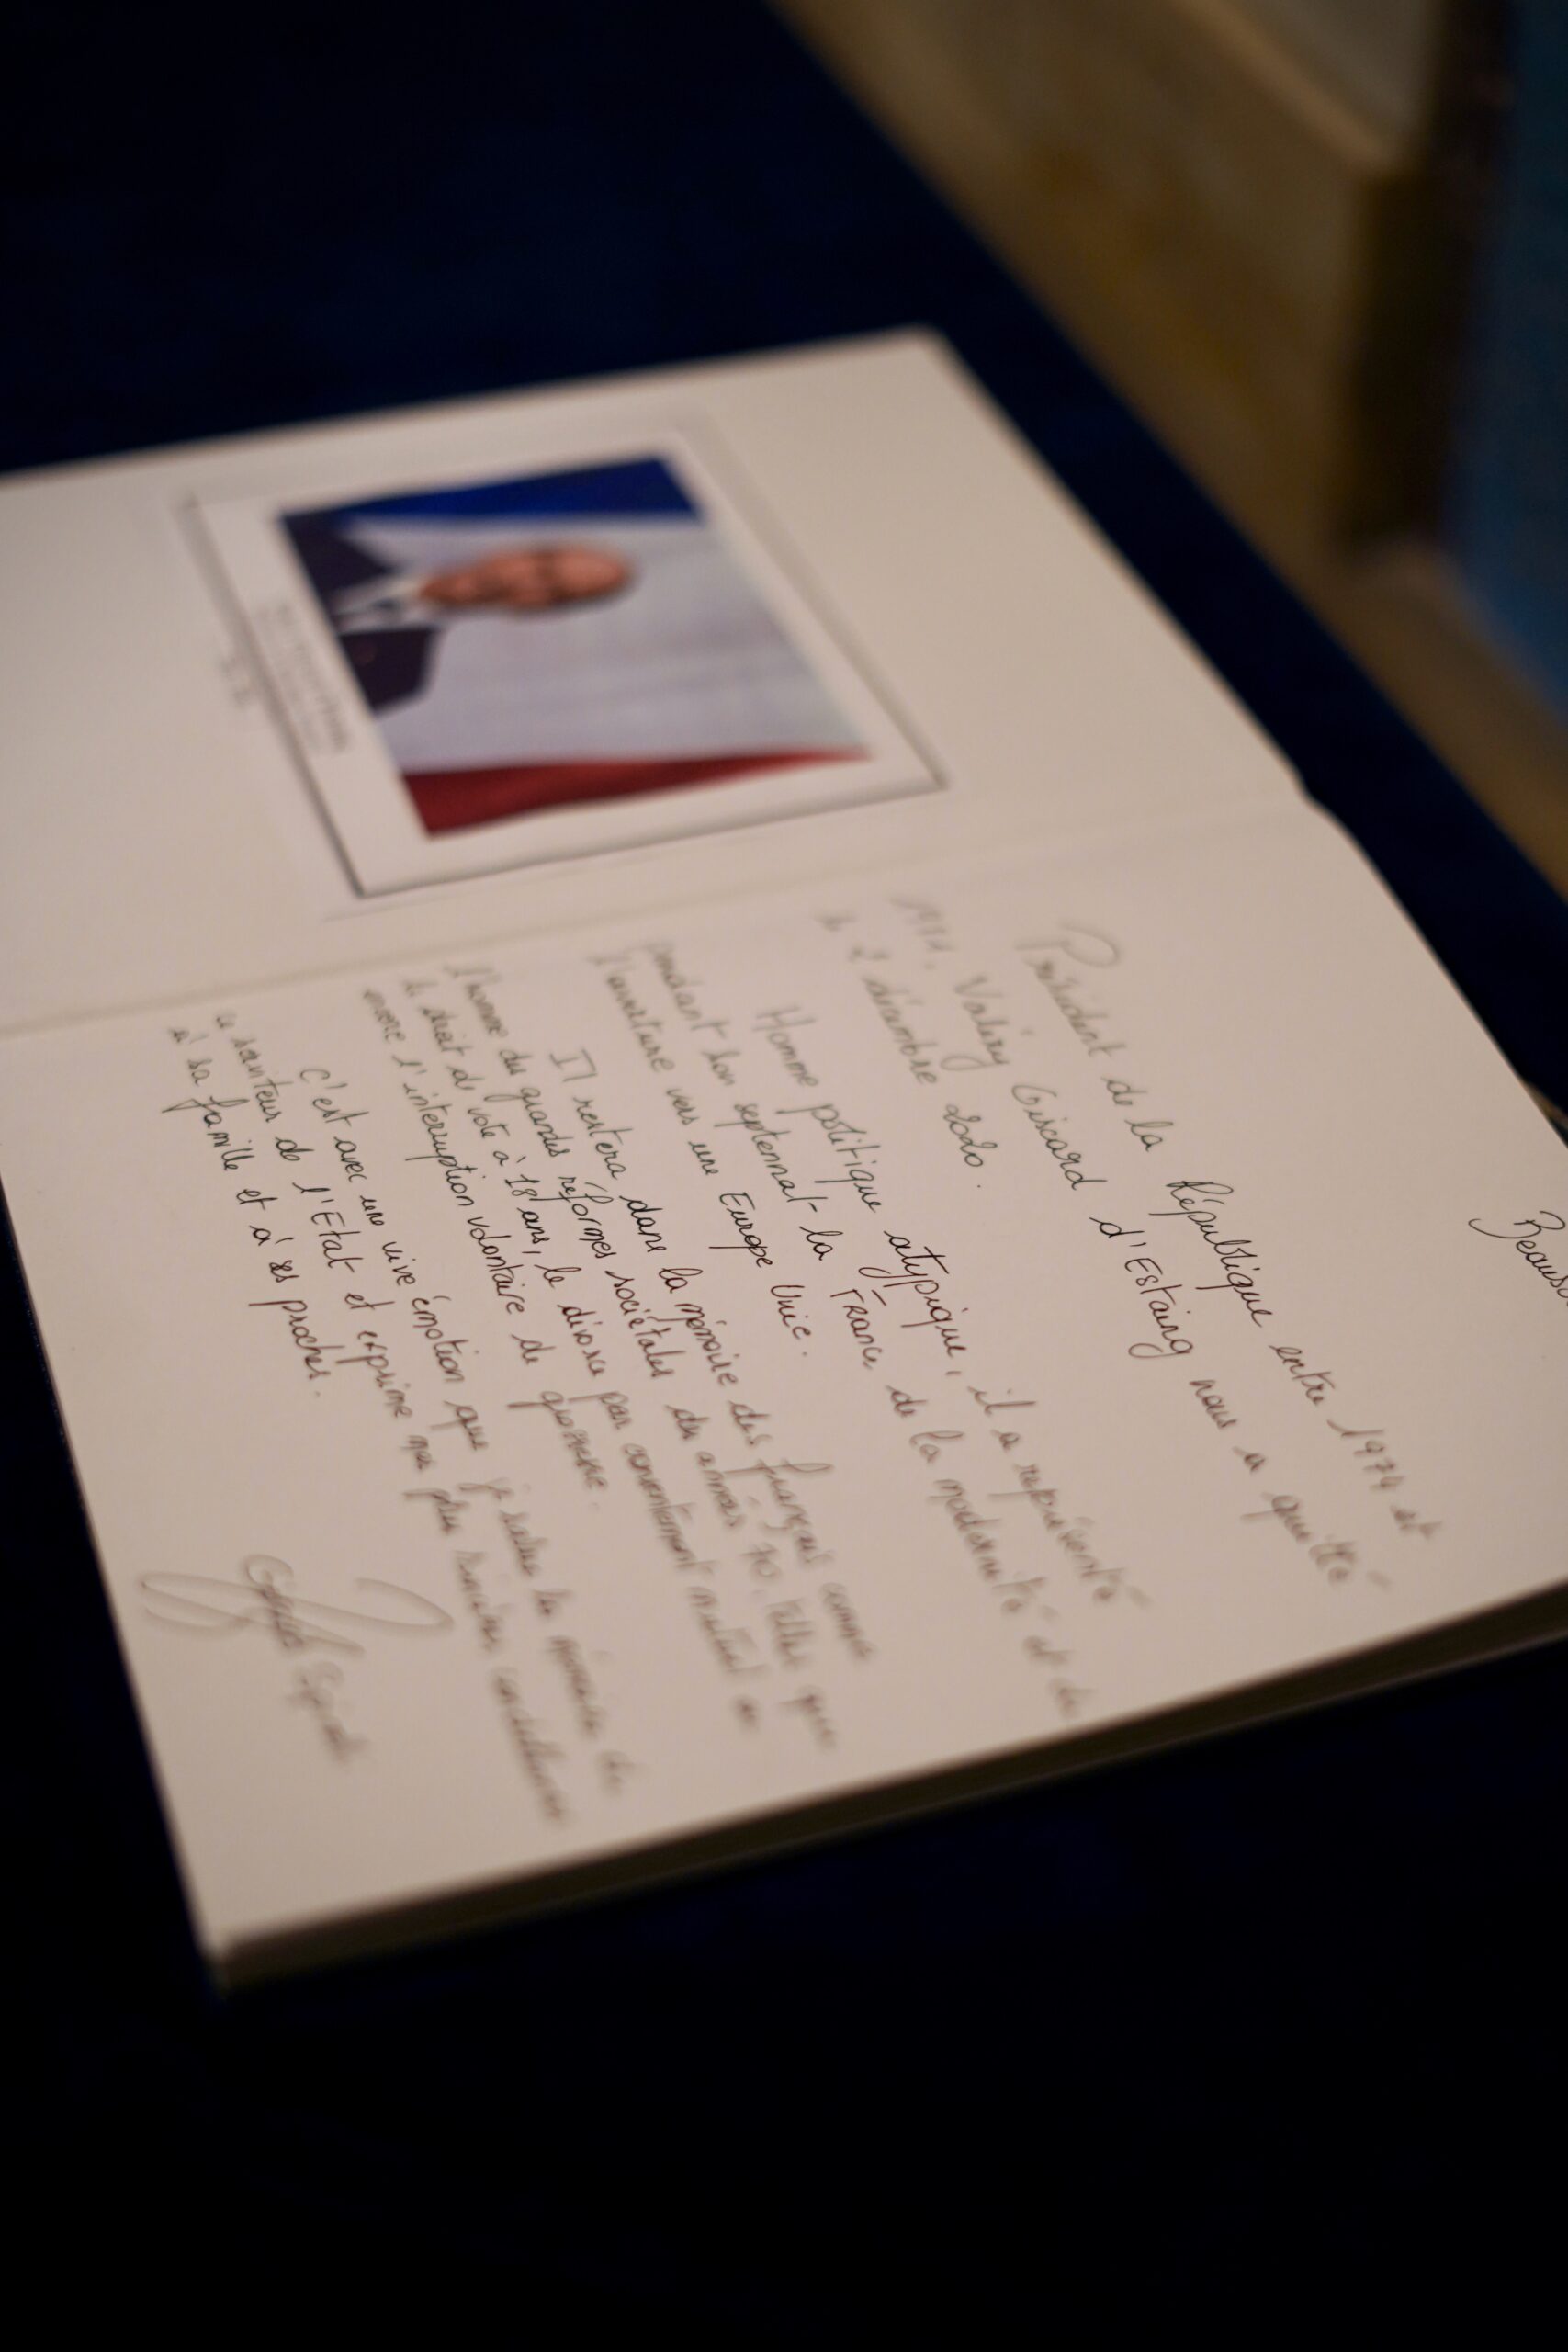 Beauso
Président de la République entre 1974 et
Valéry Giscard d'Estaing nous a quitté
le 2 décembre 2020.
Homme politique atypique, il a représenté
pendant son septennat la France de la modernité et de
l'ouverture vers une Europe Unie.
Il restera dans la mémoire des français comme
l'homme des grandes réformes sociétales des années 70, telles que
le droit de vote à 18 ans, le divorce par consentement mutuel ou
encore l'interruption volontaire de grossesse.
C'est avec une vive émotion que je salue la mémoire de
ce serviteur de l'Etat et exprime mes plus sincères condoléances
à sa famille et à ses proches.